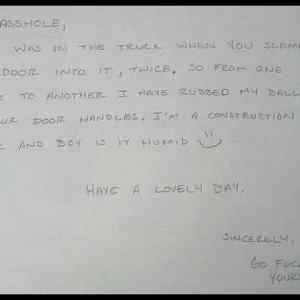 ASSHOLE,
WAS IN THE TRUCK WHEN YOU SLAM
DOOR INTO IT, TWICE. SO FROM ONE
TO ANOTHER I HAVE RUBBED MY BALL
UR DOOR HANDLES. I'M A CONSTRUCTION
AND BOY IS IT HUMID
HAVE A LOVELY DAY.
SINCERELY,
GO FUC
YOUR